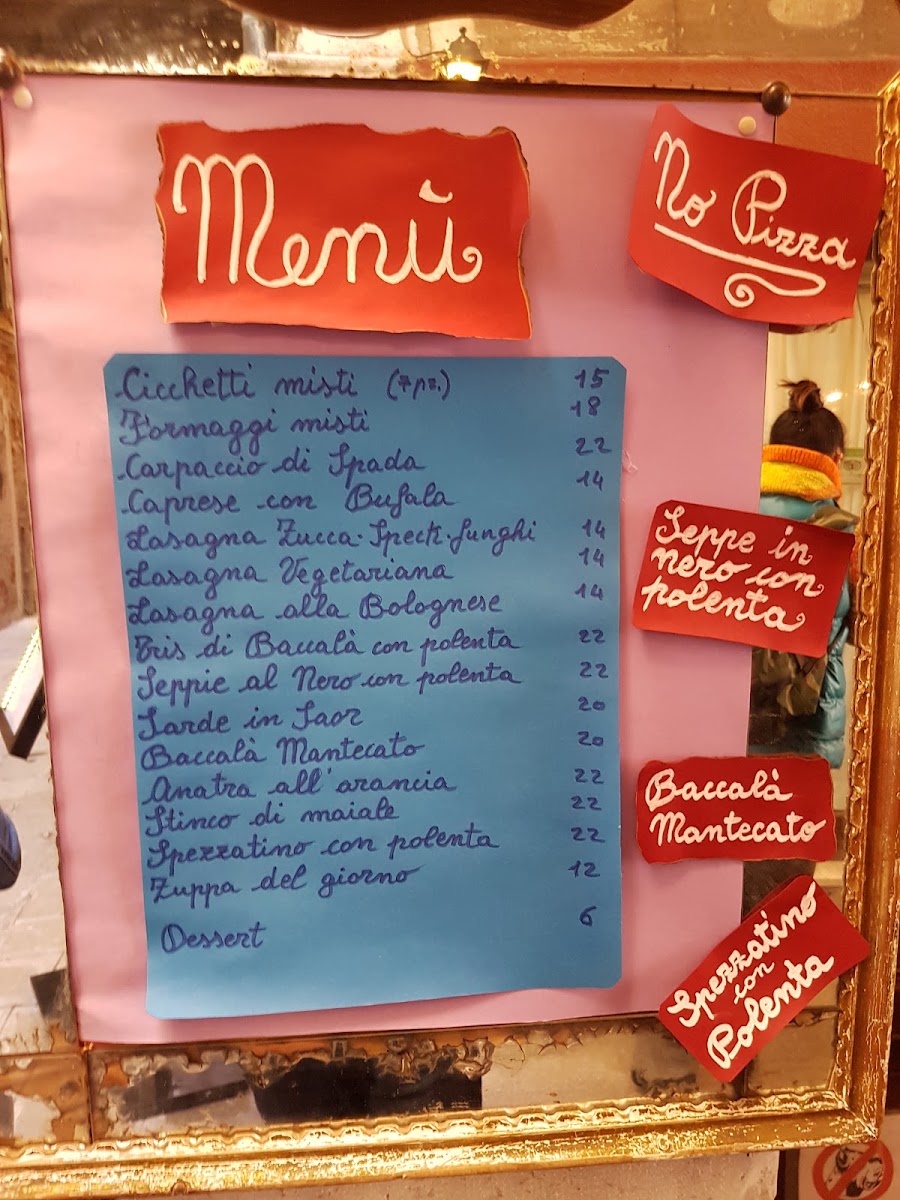 Menù
No Pizza
Cicchetti misti (7 pz.) 15
Formaggi misti 18
Carpaccio di Spada 22
Caprese con Bufala 14
Lasagna Zucca-Speck-funghi 14
Lasagna Vegetariana 14
Lasagna alla Bolognese 14
Tris di Baccalà con polenta 22
Seppie al Nero con polenta 22
Sarde in Saor 20
Baccalà Mantecato 20
Anatra all'arancia 22
Stinco di maiale 22
Spezzatino con polenta 22
Zuppa del giorno 12
Dessert 6
Seppe in
nero con
polenta
Baccalà
Mantecato
Spezzatino
con
Polenta